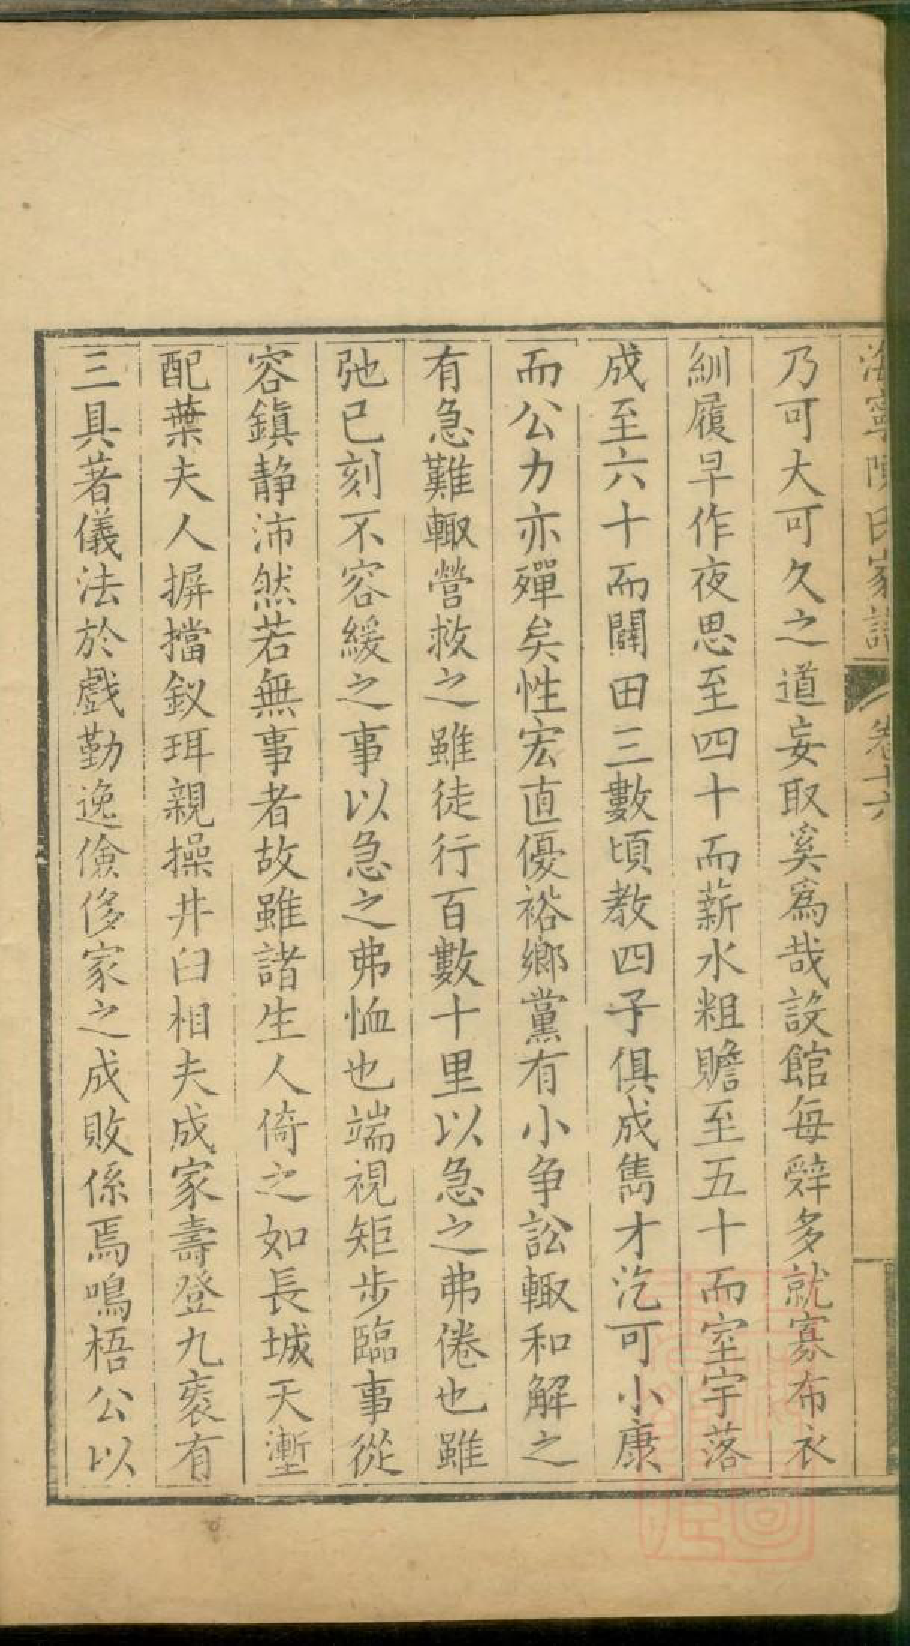 海寧陳氏家譜 卷十六
乃可大可久之道妄取奚爲哉設館每辤多就寡布衣
紃履早作夜思至四十而薪水粗贍至五十而室宇落
成至六十而闢田三數頃教四子俱成雋才汔可小康
而公力亦殫矣性宏直優裕鄉黨有小争訟輙和解之
有急難輙營救之雖徒行百數十里以急之弗倦也雖
弛已刻不容緩之事以急之弗恤也端視矩步臨事從
容鎮静沛然若無事者故雖諸生人倚之如長城天塹
配葉夫人摒擋釵珥親操井臼相夫成家壽登九袠有
三具著儀法於戲勤逸儉侈家之成敗係焉鳴梧公以